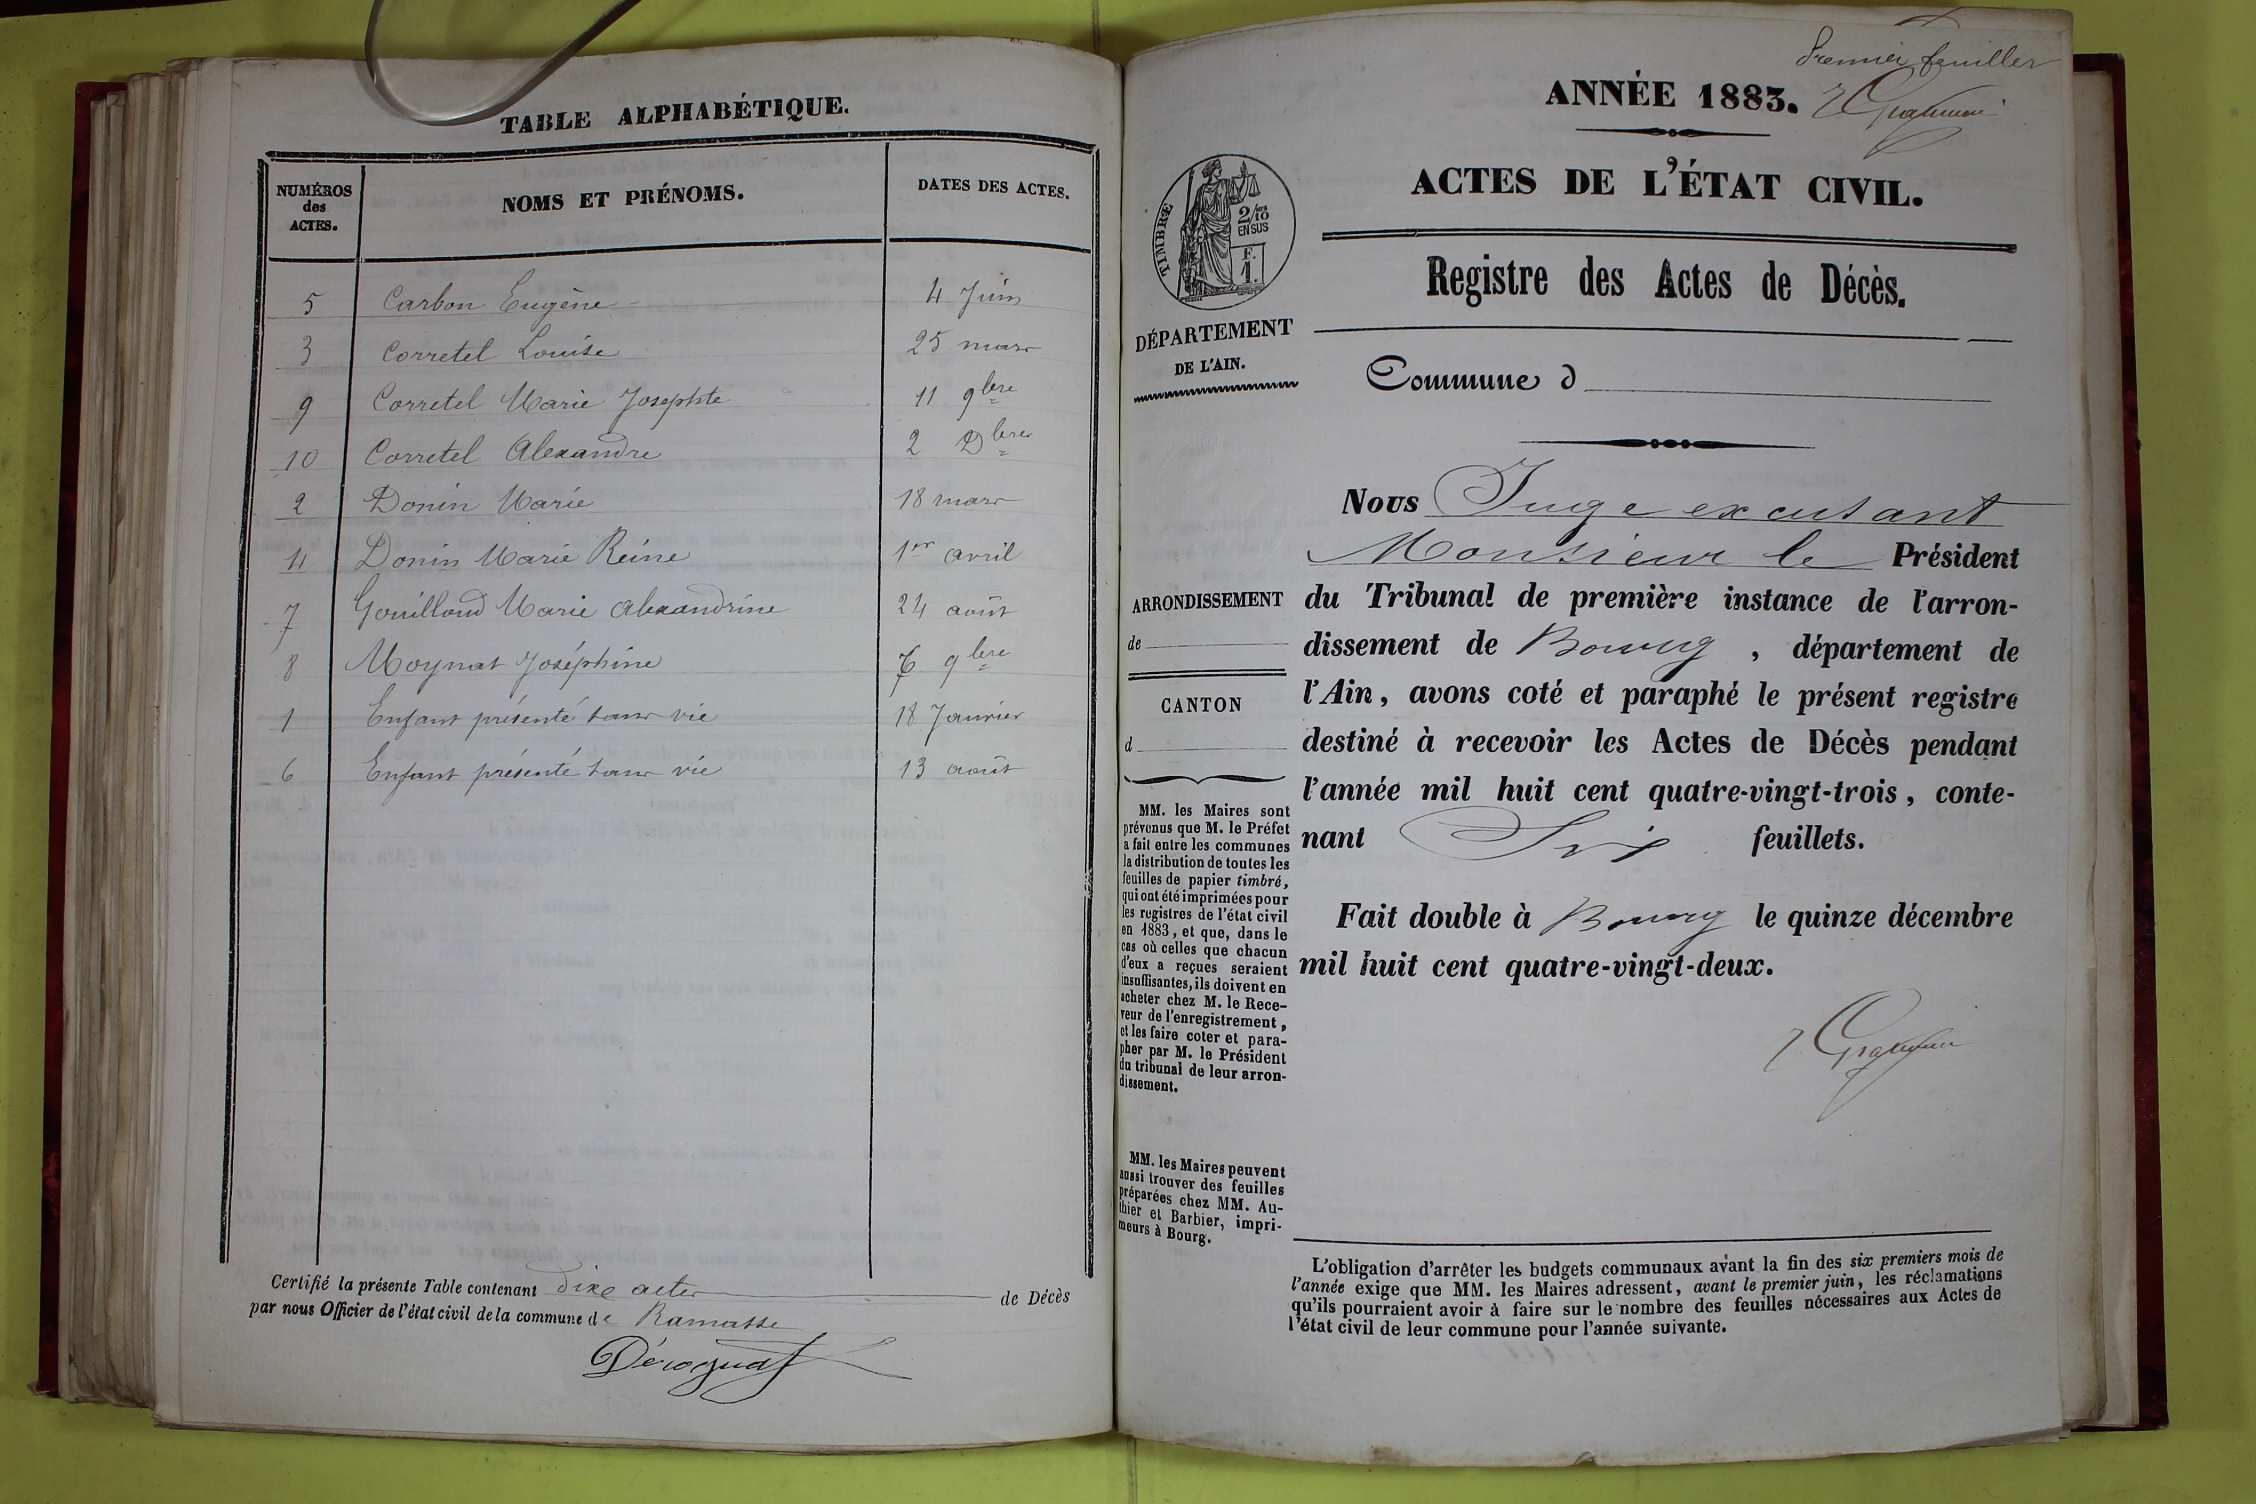 TABLE ALPHABÉTIQUE.
NUMÉROS des ACTES. NOMS ET PRÉNOMS. DATES DES ACTES.
5 Carbon Eugène 4 Juin
3 Corretel Louise 25 mars
9 Corretel Marie Josephte 11 9bre
10 Corretel Alexandre 2 Dbre
2 Donin Marie 18 mars
4 Donin Marie Reine 1er avril
7 Gouilloud Marie Alexandrine 24 août
8 Moynat Joséphine 6 9bre
1 Enfant présenté sans vie 18 Janvier
6 Enfant présenté sans vie 13 août
Certifié la présente Table contenant dixe actes de Décès
par nous Officier de l'état civil de la commune de Ramasse
Dérognat
Premier feuillet
ANNÉE 1883.
ACTES DE L'ÉTAT CIVIL.
TIMBRE
2/10
EN SUS
F.
1.
Registre des Actes de Décès.
DÉPARTEMENT
DE L'AIN.
Commune d
Nous Juge excusant
Monsieur le Président
du Tribunal de première instance de l'arron-
dissement de Bourg, département de
l'Ain, avons coté et paraphé le présent registre
destiné à recevoir les Actes de Décès pendant
l'année mil huit cent quatre-vingt-trois, conte-
nant Six feuillets.
Fait double à Bourg le quinze décembre
mil huit cent quatre-vingt-deux.
ARRONDISSEMENT
de
CANTON
d
MM. les Maires sont
prévenus que M. le Préfet
a fait entre les communes
la distribution de toutes les
feuilles de papier timbré,
qui ont été imprimées pour
les registres de l'état civil
en 1883, et que, dans le
cas où celles que chacun
d'eux a reçues seraient
insuffisantes, ils doivent en
acheter chez M. le Rece-
veur de l'enregistrement,
et les faire coter et para-
pher par M. le Président
du tribunal de leur arron-
dissement.
MM. les Maires peuvent
aussi trouver des feuilles
préparées chez MM. Au-
thier et Barbier, impri-
meurs à Bourg.
L'obligation d'arrêter les budgets communaux avant la fin des six premiers mois de
l'année exige que MM. les Maires adressent, avant le premier juin, les réclamations
qu'ils pourraient avoir à faire sur le nombre des feuilles nécessaires aux Actes de
l'état civil de leur commune pour l'année suivante.